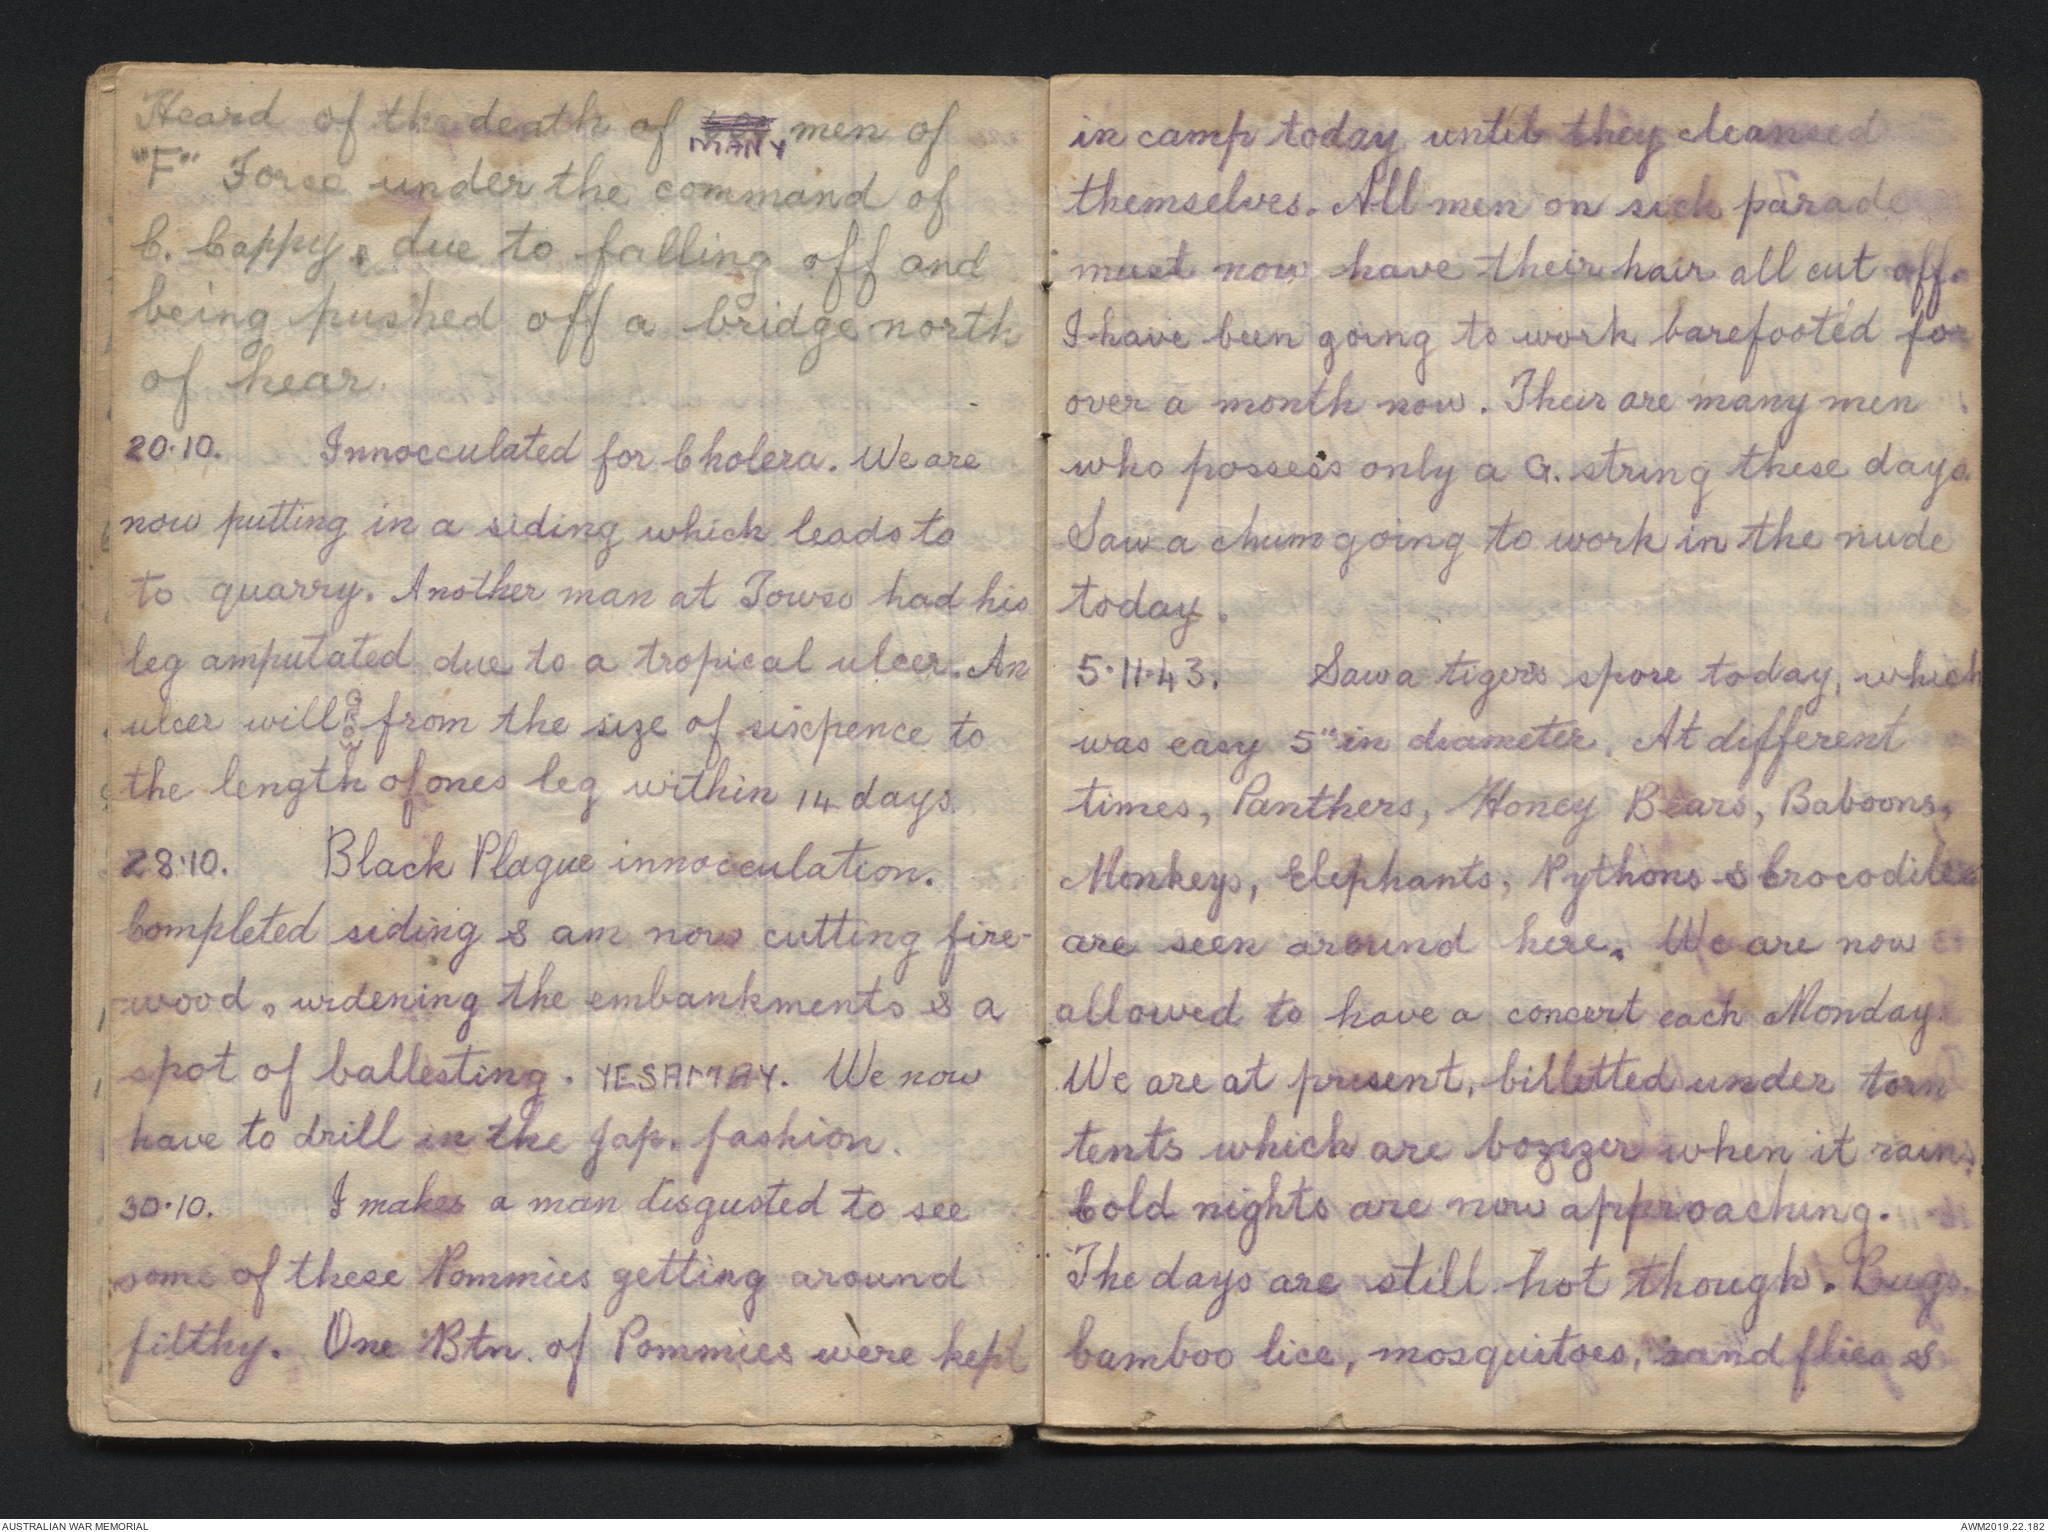 Heard of the death of MANY men of
"F" Force under the command of
C. Cappy, due to falling off and
being pushed off a bridge north
of hear.
20·10. Innocculated for Cholera. We are
now putting in a siding which leads to
to quarry. Another man at Towso had his
leg amputated due to a tropical ulcer. An
ulcer will GROW from the size of sixpence to
the length of ones leg within 14 days.
28·10. Black Plague innocculation.
Completed siding & am now cutting fire-
wood, widening the embankments & a
spot of ballesting. YESAMAY. We now
have to drill in the Jap. fashion.
30·10. I makes a man disgusted to see
some of these Pommies getting around
filthy. One Btn. of Pommies were kept
in camp today until they cleansed
themselves. All men on sick parade
must now have their hair all cut off.
I have been going to work barefooted for
over a month now. Their are many men
who possess only a G. string these days.
Saw a chum going to work in the nude
today.
5·11·43. Saw a tigers spore today, which
was easy 5" in diameter. At different
times, Panthers, Honey Bears, Baboons,
Monkeys, Elephants, Pythons & Crocodiles
are seen around here. We are now
allowed to have a concert each Monday.
We are at present, billetted under torn
tents which are bozezer when it rains.
Cold nights are now approaching.
The days are still hot though. Bugs,
bamboo lice, mosquitoes, sand flies &
AUSTRALIAN WAR MEMORIAL
AWM2019.22.182